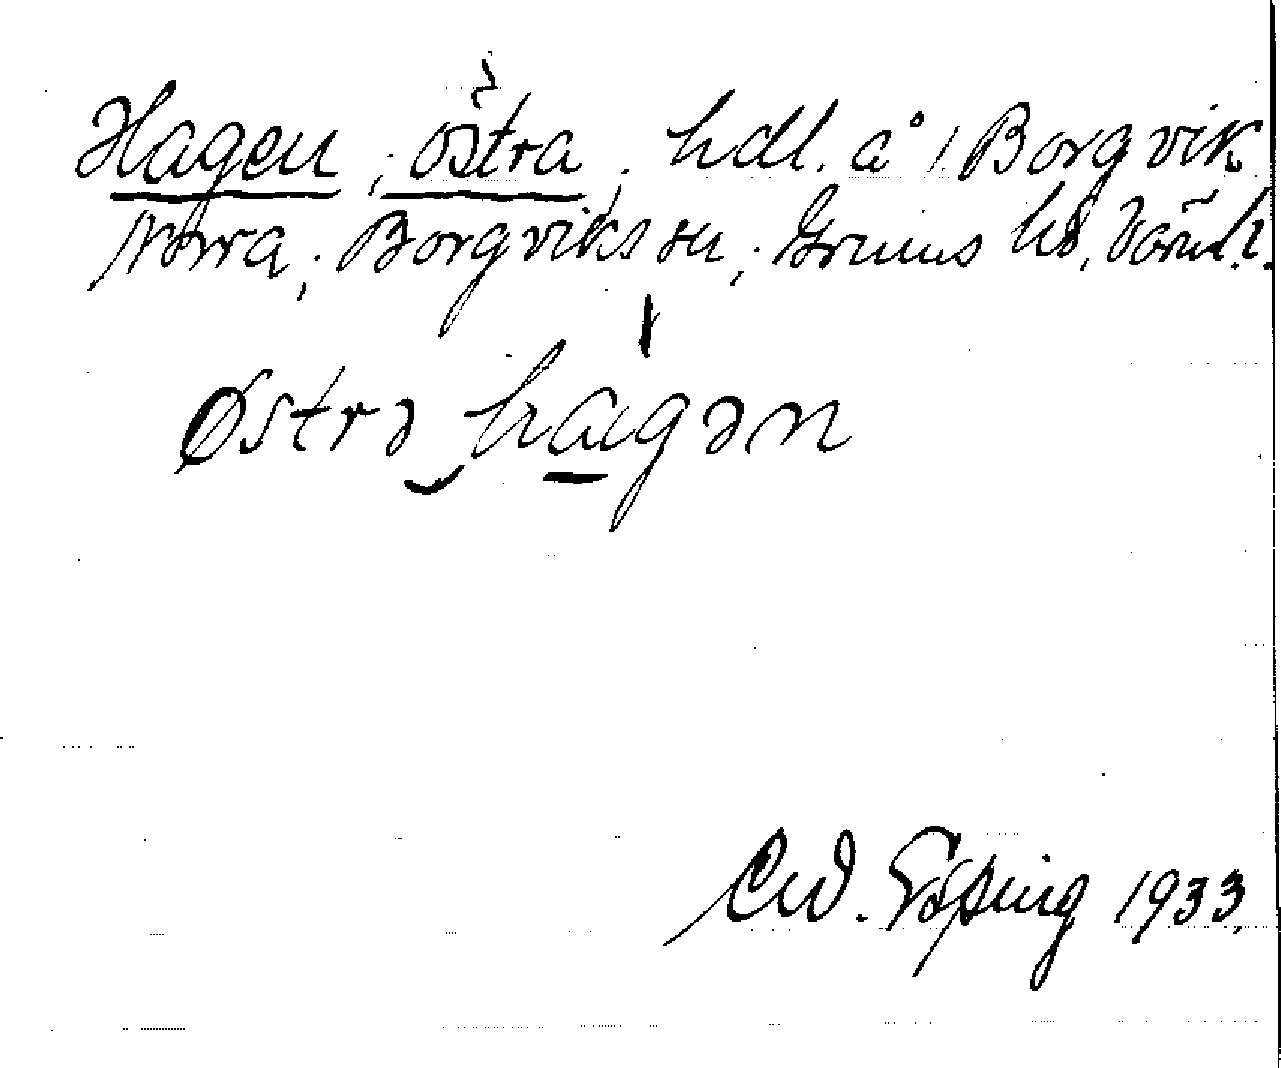 Hagen, östra, hdl. å 1 Borgvik
Norra, Borgviks sn, Grums hd, Värml.
østrə hagən
1933.